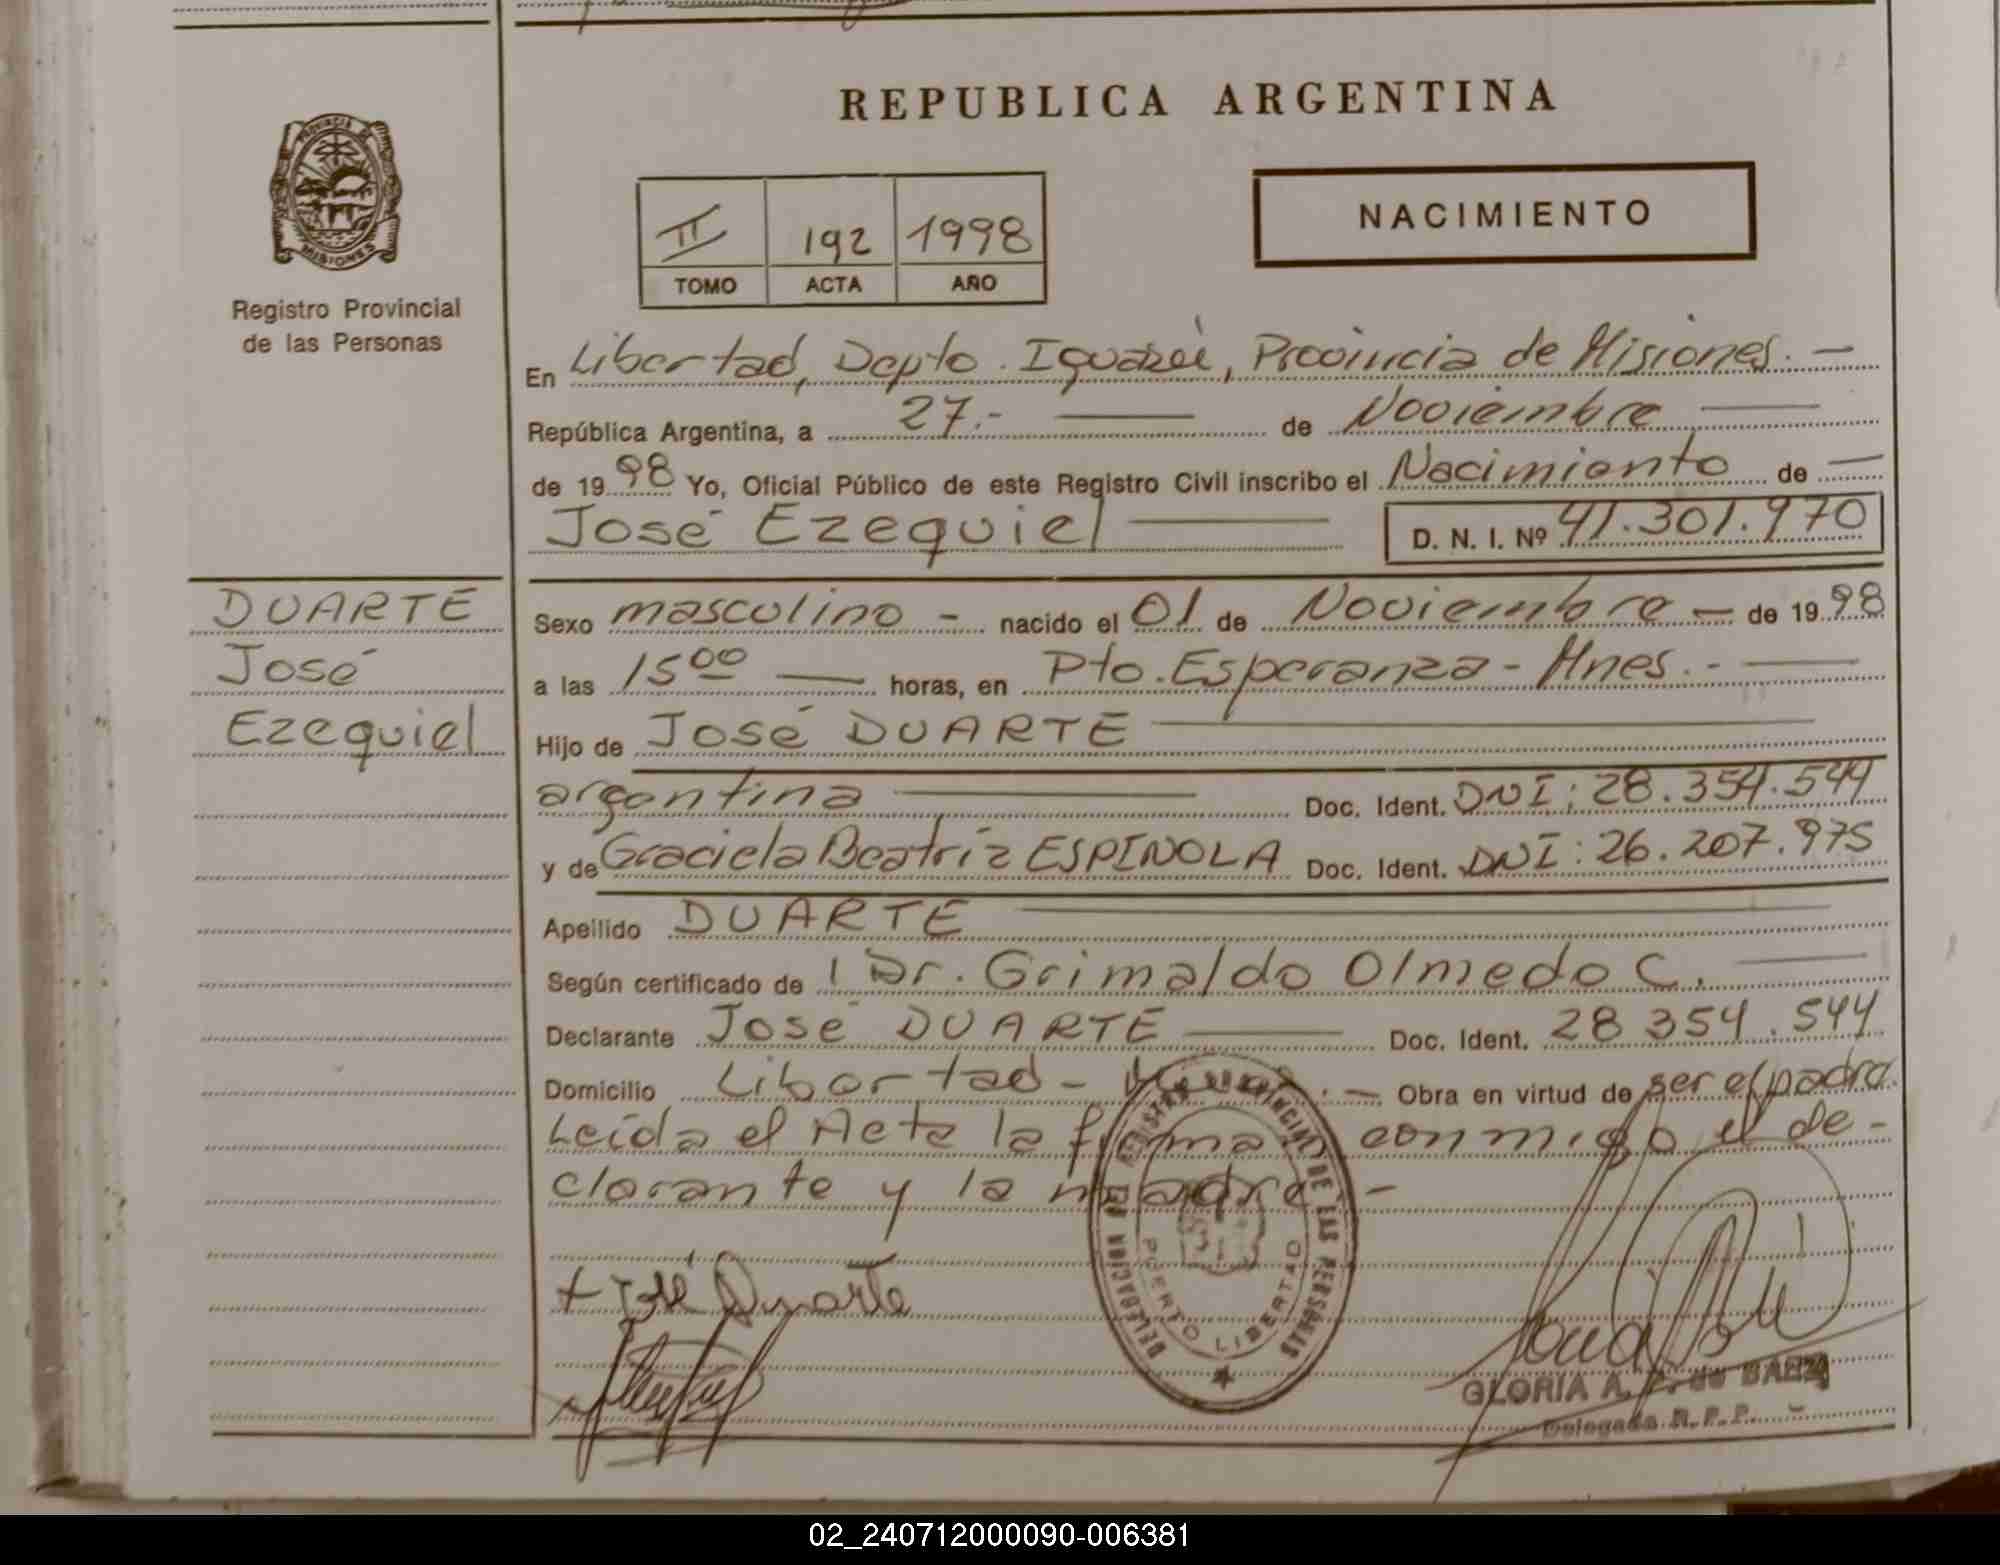 REPUBLICA ARGENTINA
PROVINCIA DE MISIONES
Registro Provincial
de las Personas
II 192 1998
TOMO ACTA AÑO
NACIMIENTO
En Libertad, Depto. Iguazú, Provincia de Misiones. —
República Argentina, a 27.- — de Noviembre —
de 1998 Yo, Oficial Público de este Registro Civil inscribo el Nacimiento de —
José Ezequiel — D. N. I. Nº 41.301.970
DUARTE
José
Ezequiel
Sexo masculino - nacido el 01 de Noviembre — de 1998
a las 15 00 — horas, en Pto. Esperanza - Mnes. - —
Hijo de José DUARTE —
argentina — Doc. Ident. DNI: 28.354.544
y de Graciela Beatriz ESPINOLA Doc. Ident. DNI: 26.207.975
Apellido DUARTE —
Según certificado de | Dr. Grimaldo Olmedo C. —
Declarante José DUARTE — Doc. Ident. 28 354.544
Domicilio Libertad - — Obra en virtud de ser el padre
Leída el Acta la firma conmigo el de-
clarante y la madre -
DELEGACION DEL REGISTRO PROVINCIAL DE LAS PERSONAS
PUERTO LIBERTAD
José Duarte
GLORIA A. de BAEZ
Delegada R.P.P.
02_240712000090-006381